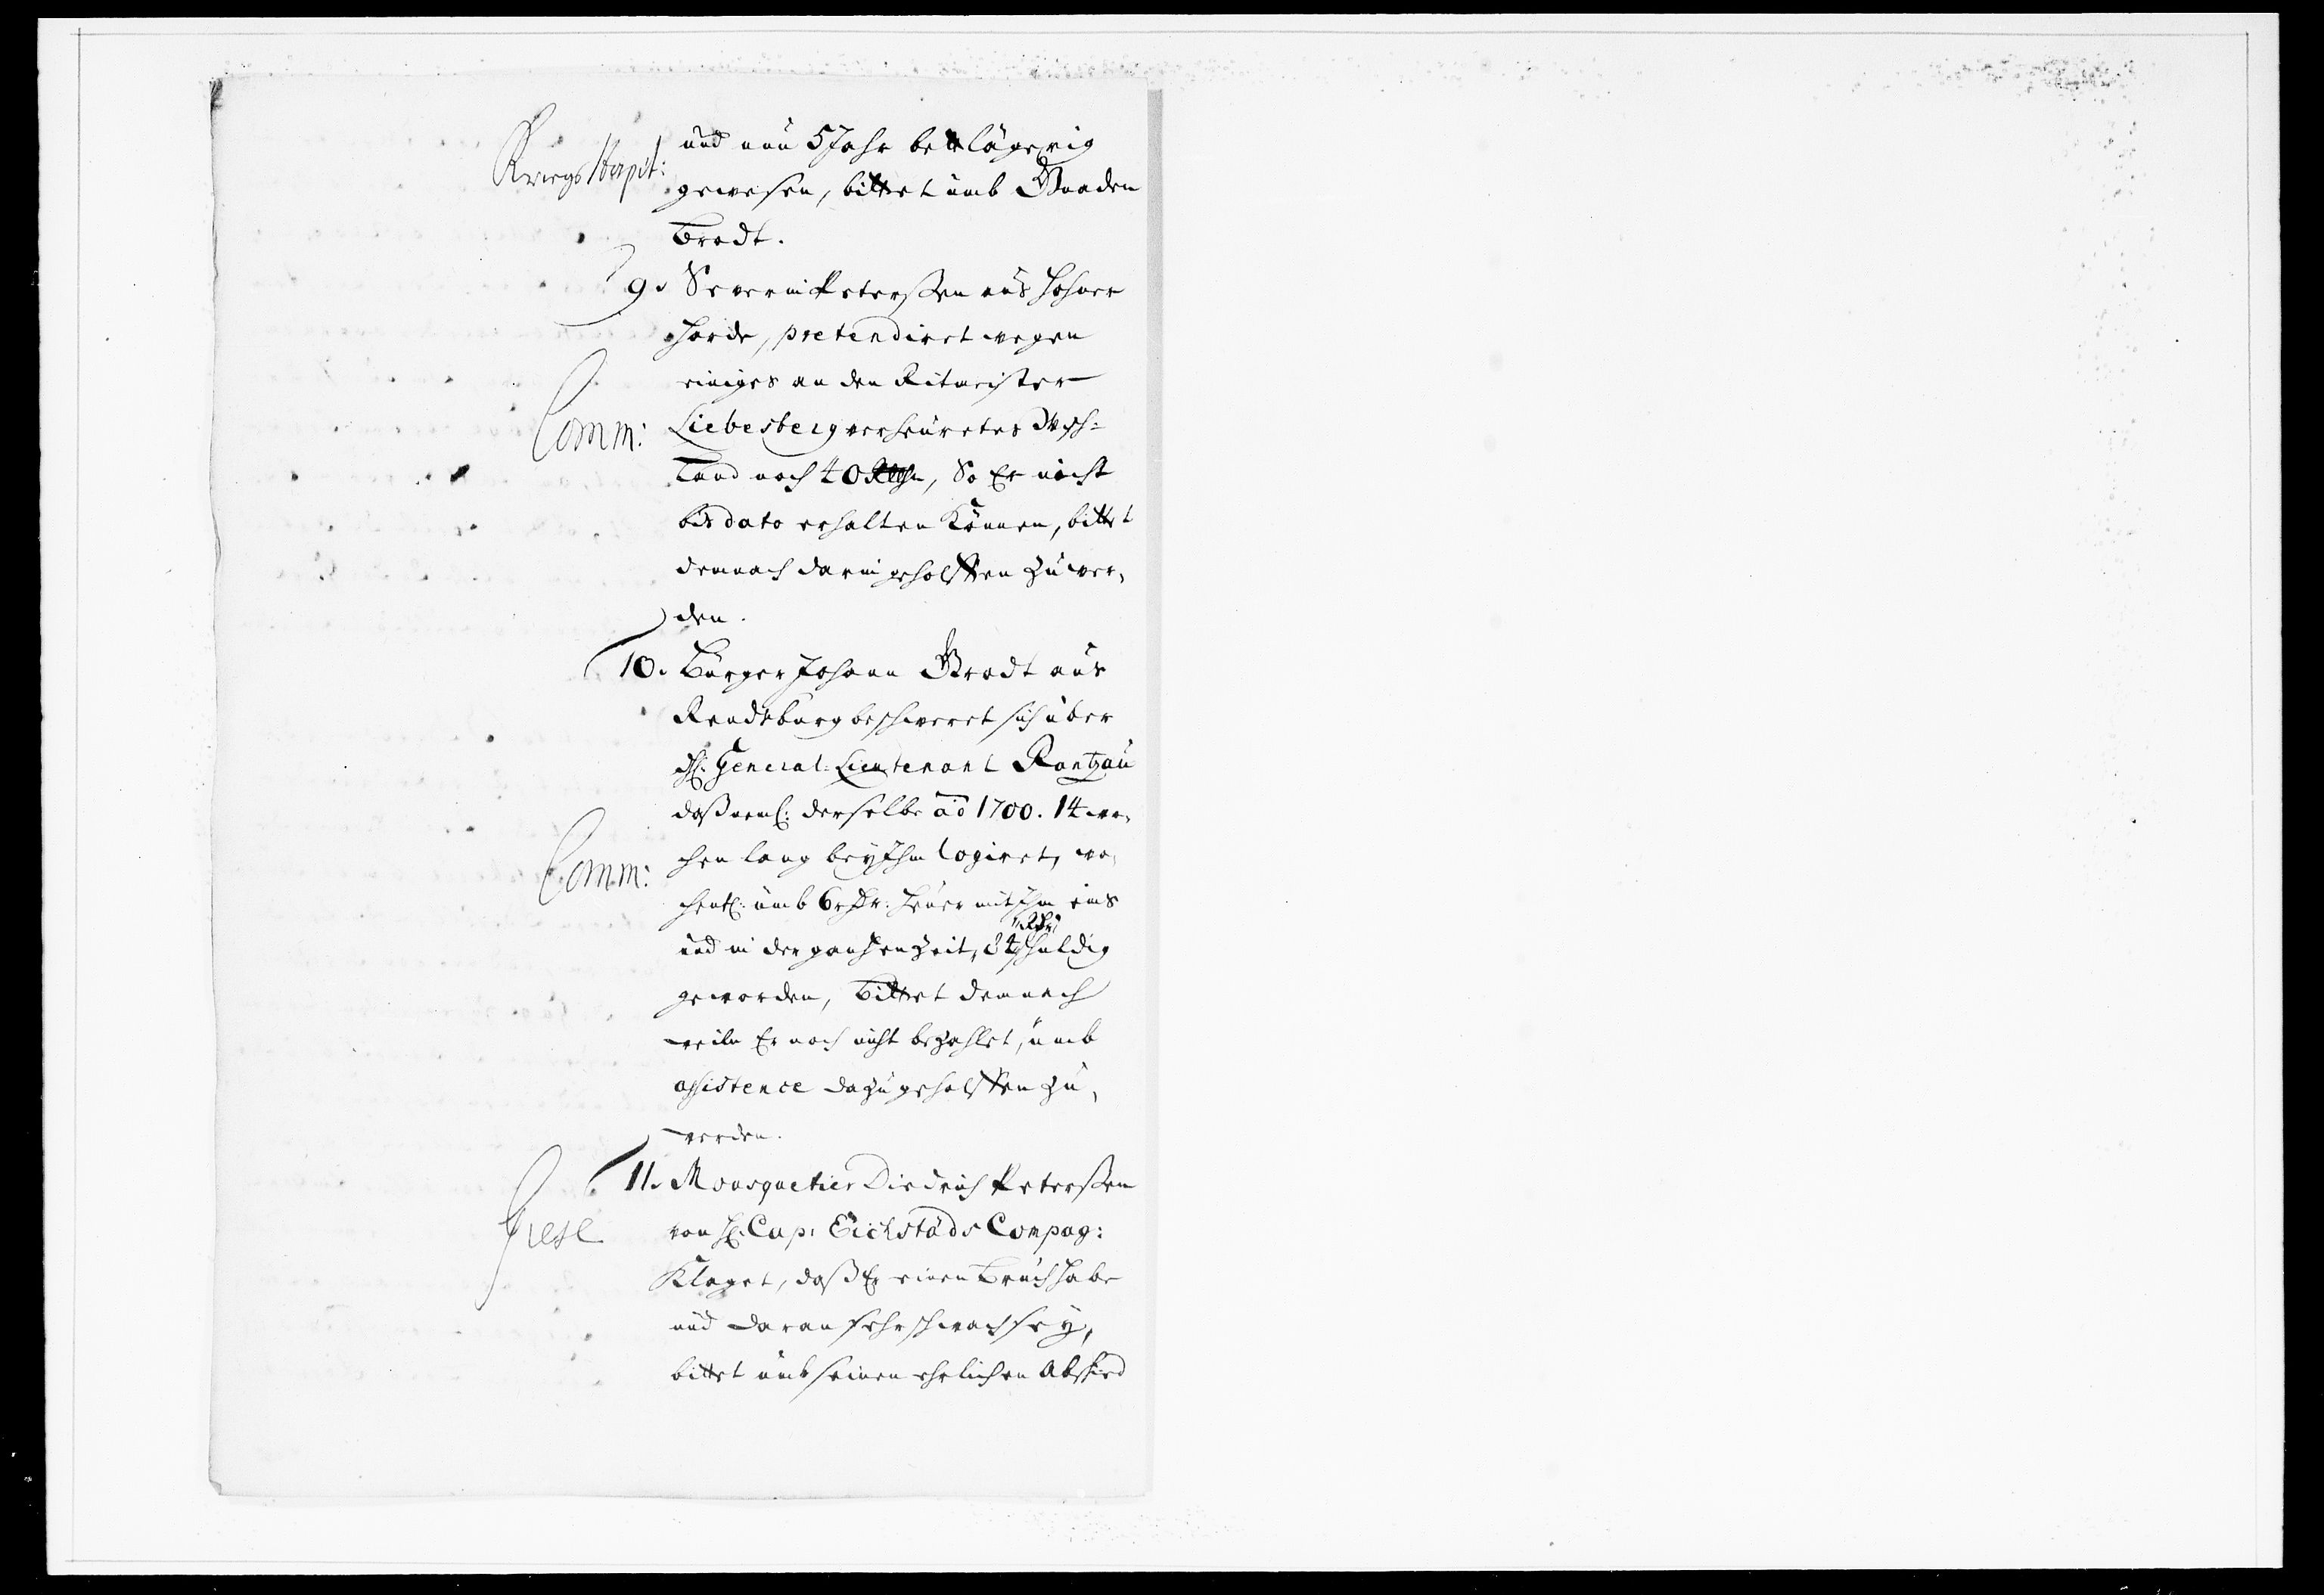 Kriegs Hospit:
und nun 5 Jahr bettlägerig
gewesen, bittet umb Gnaden
Brodt.
9. Severin Peterßen aus Hohner
Harde, pretendiret wegen
einiges an den Ritmeister
Comm:
Liebesberg verheuretes
Land noch 40 Rthr, So Er nicht
bis dato erhalten können, bittet
demnach darin geholffen zu wer,
den.
10. Bürger Johann Brodt aus
Rendsburg beschweret sich über
H: General-Lieutenant Rantzau
daß neml: derselbe aõ 1700. 14 wo,
Comm:
chen lang bey Ihm logiret, wo,
chentl: umb 6 Heuer mit Ihm eins
und in der gantzen Zeit, 84 Rthr schuldig
geworden, Bittet demnach
weiln Er noch nicht bezahlet, umb
assistence dazu geholffen zu,
werden.
11. Mousquetier Diedrich Peterßen
von H: Cap: Eichstäds Compag:
Klaget, daß Er einen Bruch habe
und daran sehr schwach sey,
bittet umb seinen ehrlichen Abschied